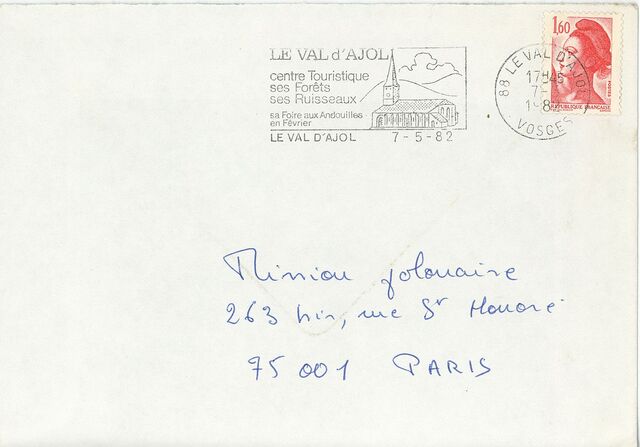 LE VAL d'AJOL
centre Touristique
ses Forêts
ses Ruisseaux
sa Foire aux Andouilles
en Février
LE VAL D'AJOL 7-5-82
88 LE VAL D'AJOL
17H45
7-
198
VOSGES
1,60
POSTES
REPUBLIQUE FRANCAISE
Mission polonaise
263 bis, rue St Honoré
75001 PARIS